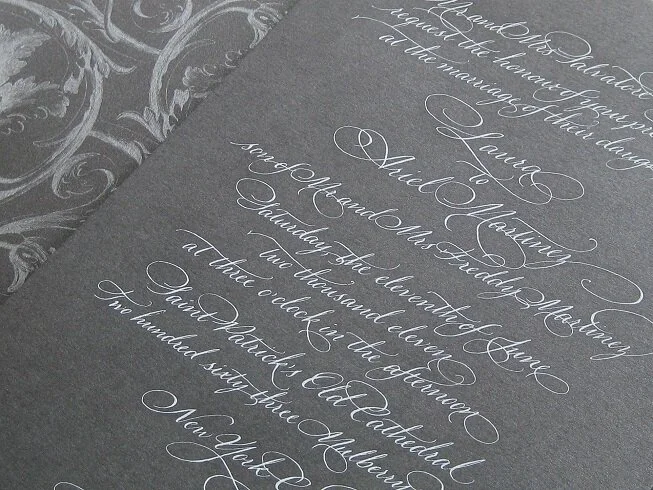 Mr and Mrs Salvatore
request the honour of your
at the marriage of their
Laura
to
Ariel Martinez
son of Mr and Mrs Freddy Martinez
Saturday, the eleventh of June
two thousand eleven
at three o'clock in the afternoon
Saint Patrick's Old Cathedral
Two hundred sixty-three Mulberry
New York